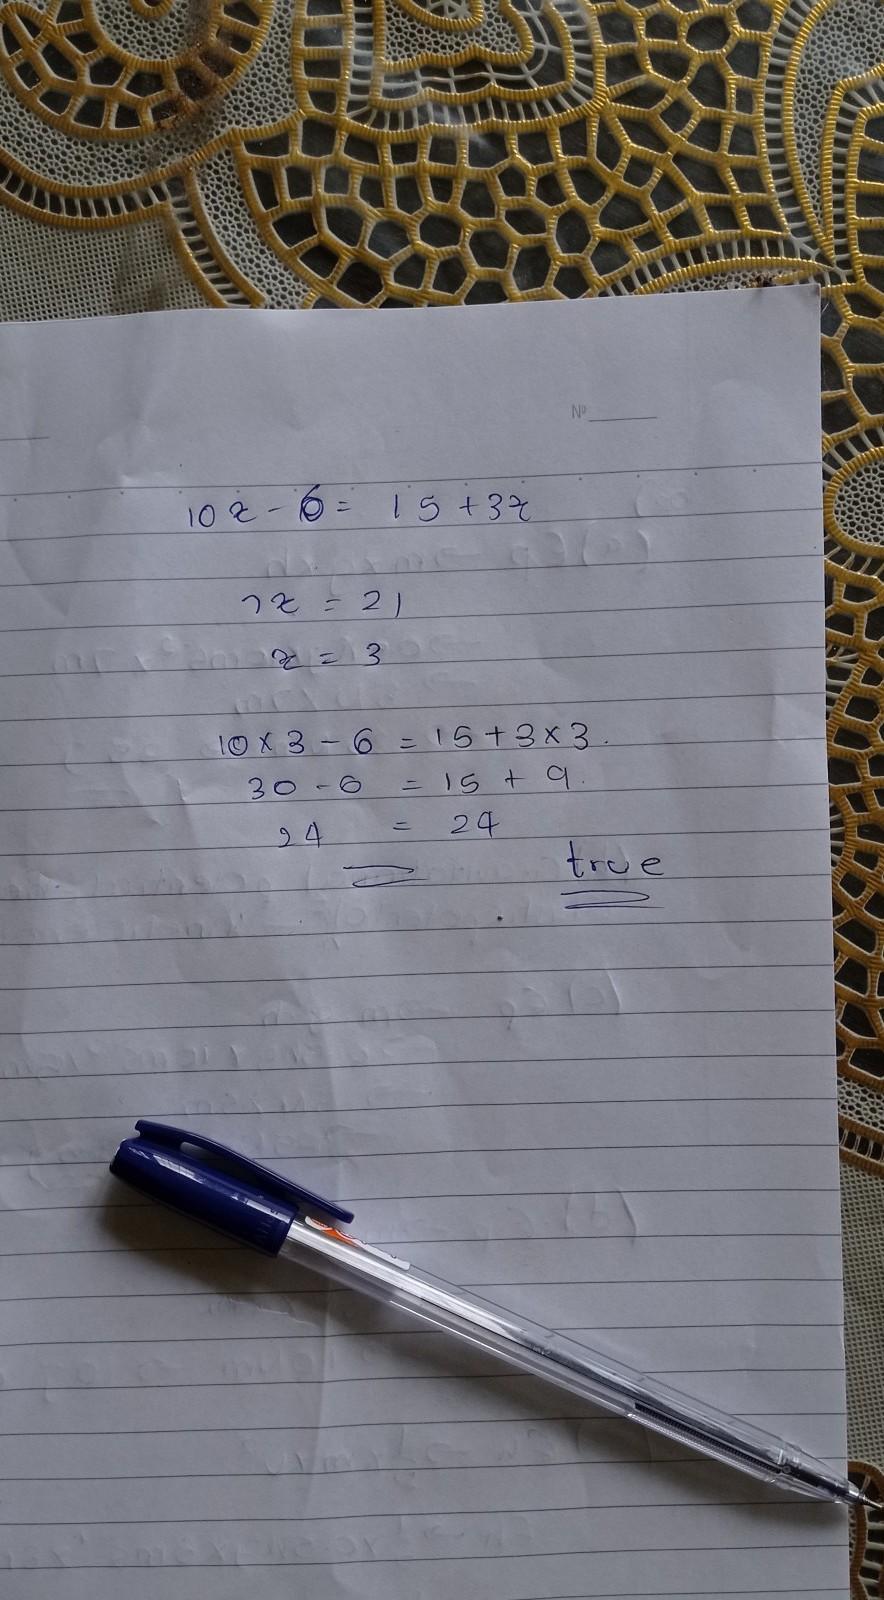 Nº
10x - 6 = 15 + 3x
7x = 21
x = 3
10 × 3 - 6 = 15 + 3 × 3.
30 - 6 = 15 + 9.
24 = 24
true